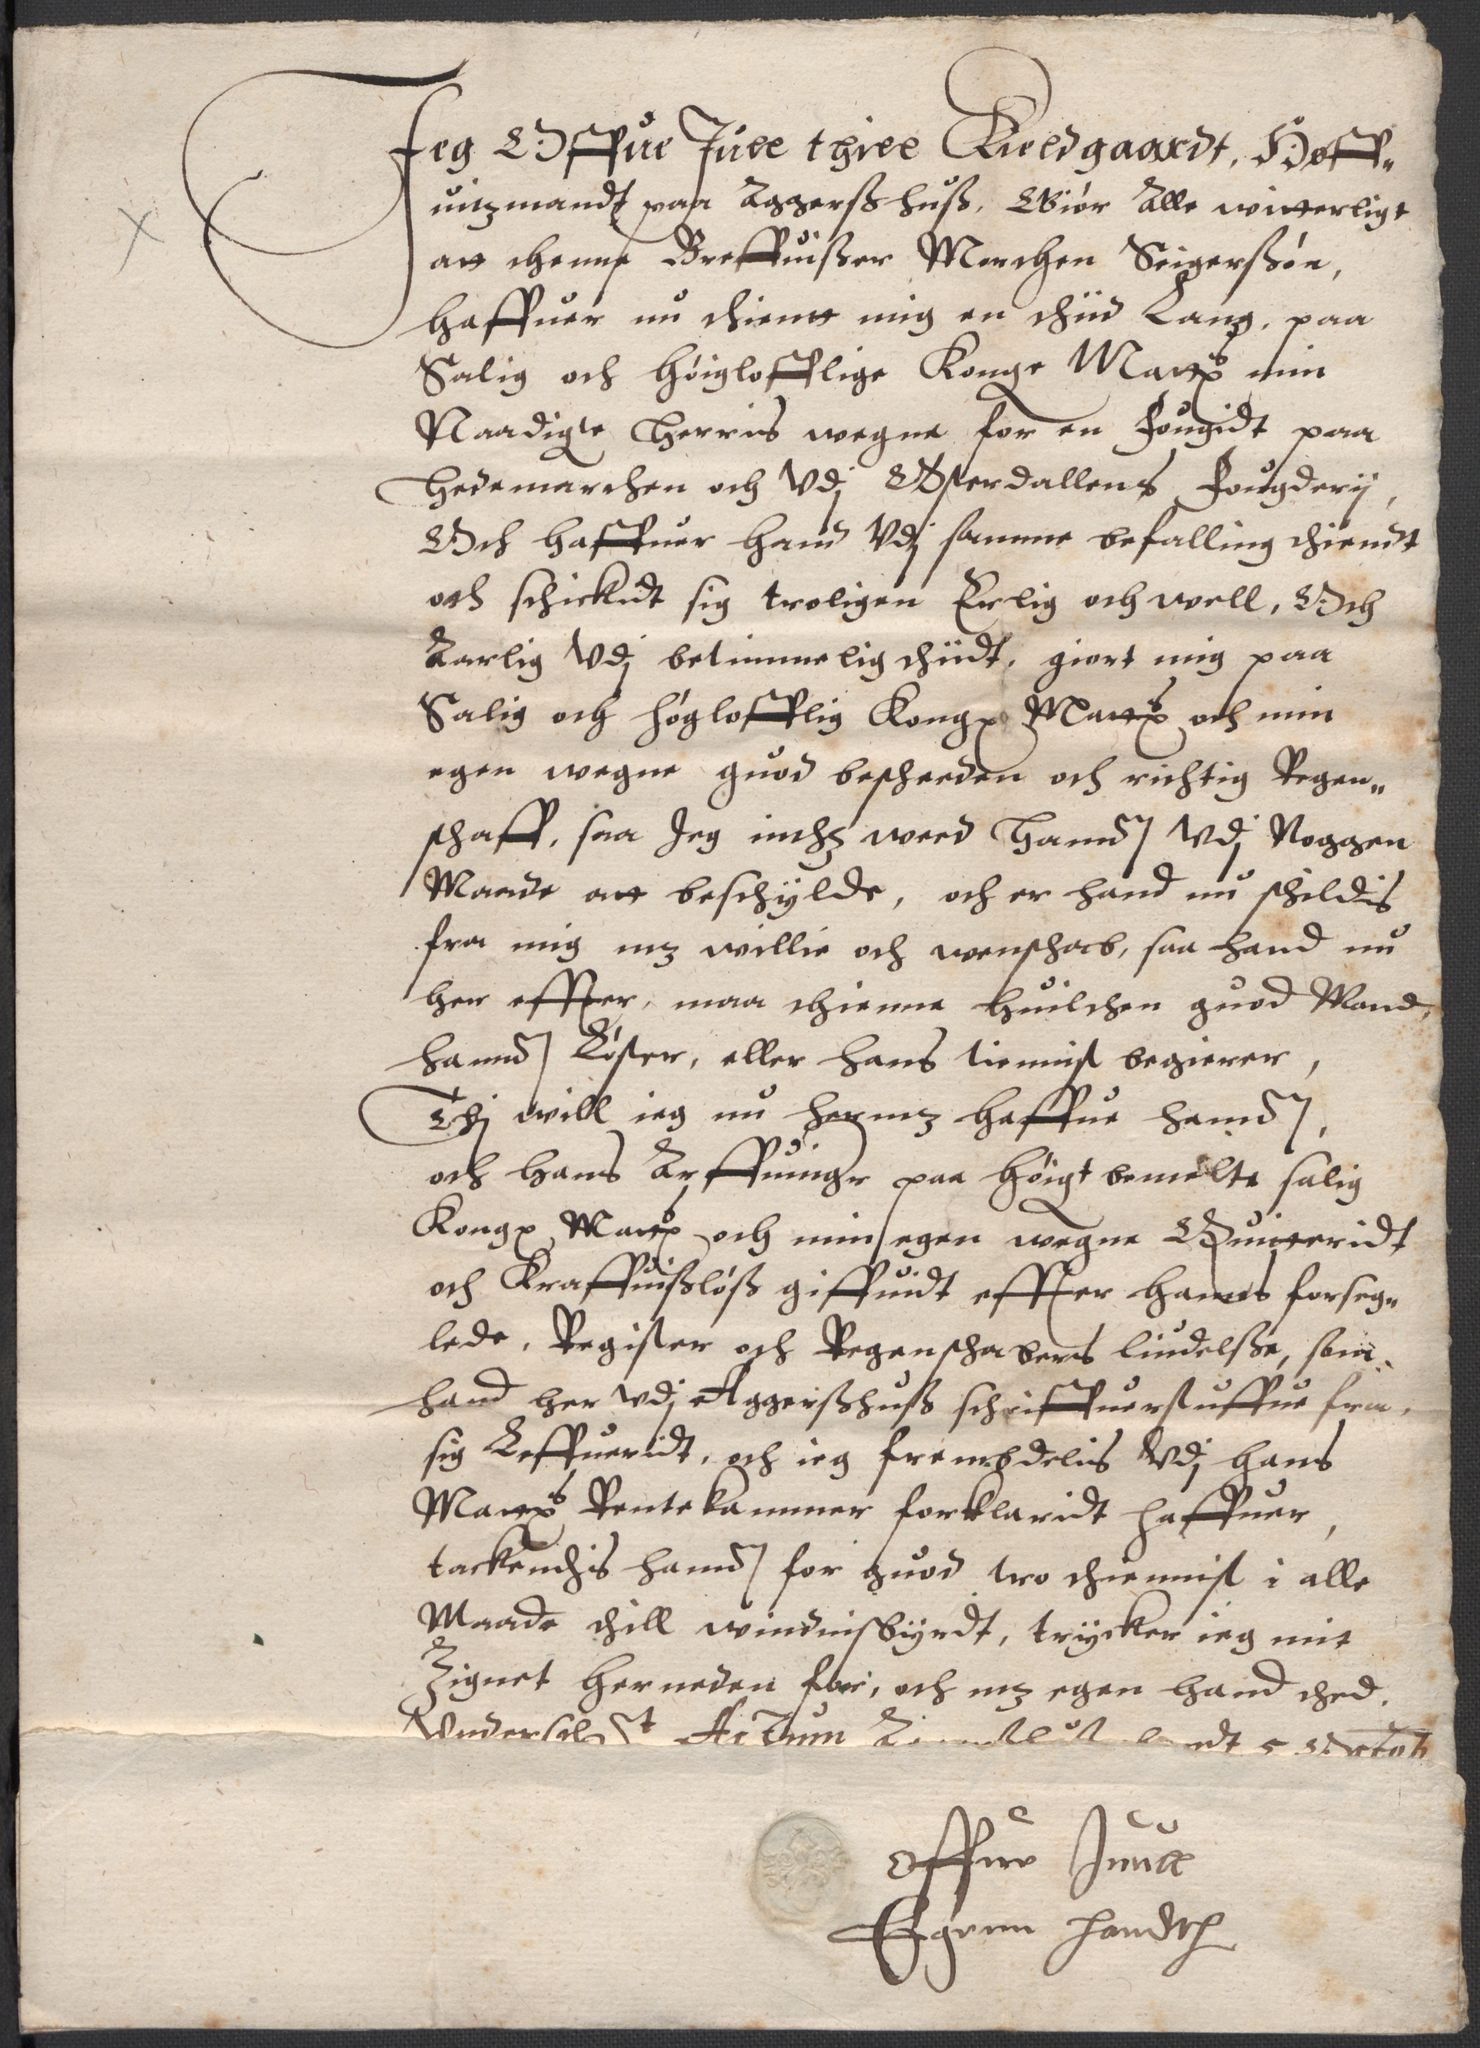 Jeg Offue Juel thill Kieldgaardt, Höff„
uitzmandt paa Aggersshuss, Giör Alle witterligt
att thenne Breffuisser Morthen Seigerssön,
haffuer nu thientt mig en thiid Lang, paa
Salig och höigloffflige Konge Mattz min
Naadigste Herris wegne for en Fougidt paa
Hedemarchen och Vdj Østerdallens Fougderij,
Och haffuer hand Vdj samme befalling thiendt
och schickidt sig troligen Erlig och well, Och
Aarlig Vdj betimmelig thiidt, giort mig paa
Salig och högloffflig Kong: Mattz och min
egen wegne guod bescheeden och richtig Regen„
schaff, saa Jeg inthz weed hannd Vdj Noggen
Maade att beschylde, och er hand nu schildis
fra mig mz willie och wenschab, saa hand nu
her effter, maa thienne huilchen guod Mand,
hannd Löster, eller hans tienist begierer,
Thj will ieg nu hermz haffue hannd,
och hans Arffuinge paa höigt bemelte salig
Kong: Mattz och min egen wegne Quitteridt
och Kraffuisslöss giffuidt effter hanns forseg„
lede, Register och Regenschabers liudelsse, som
hand her vdj Aggersshuss schriffuerstuffue fra
sig Leffueridt, och ieg frembdelis Vdj hans
Mattz Rentekammer forklaridt haffuer,
tackendis hannd for guod tro thienist i alle
Maade thill windnisbyrdt, trycker ieg mit
Zignet herneden for, och mz egen hand thed
Vnderschr:t Actum
Offue Juell
Egenn handt